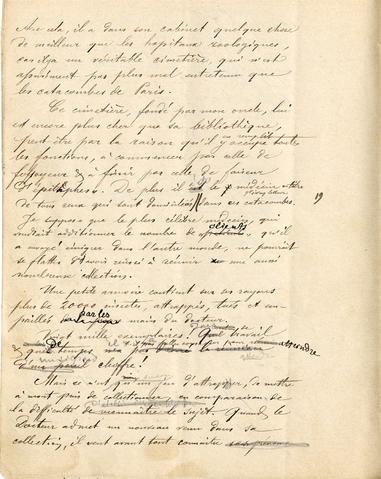 Avec cela, il a dans son cabinet quelque chose
de meilleur que les hôpitaux zoologiques,
car il y a un véritable cimetière, qui n'est
assurément pas plus mal entretenu que
les catacombes de Paris.
Ce cimetière, fondé par mon oncle, lui
est encore plus cher que sa bibliothèque,
peut être par la raison qu'il y remplit toutes
les fonctions, à commencer par celle de
fossoyeur & à finir par celle de faiseur
d'épitaphes. De plus il est le médecin
de tous ceux qui sont domiciliés dans ces catacombes.
19
Je suppose que le plus célèbre médecin, qui
voudrait additionner le nombre de clients qu'il
a envoyé émigrer dans l'autre monde, ne pourrait
se flatter d'avoir réussi à réunir une aussi
nombreuse collection.
Une petite armoire contient sur ses rayons
plus de 20000 insectes, attrappés, tués et em-
paillés par les mains du docteur.
Vingt mille exemplaires! Quel travail
& que de temps pour atteindre
chiffre!
Mais ce n'est qu'un jeu d'attrapper, de mettre
à mort puis de collectionner, en comparaison de
la difficulté de connaître le sujet. Quand le
docteur admet un nouveau venu dans sa
collection, il veut avant tout connaître